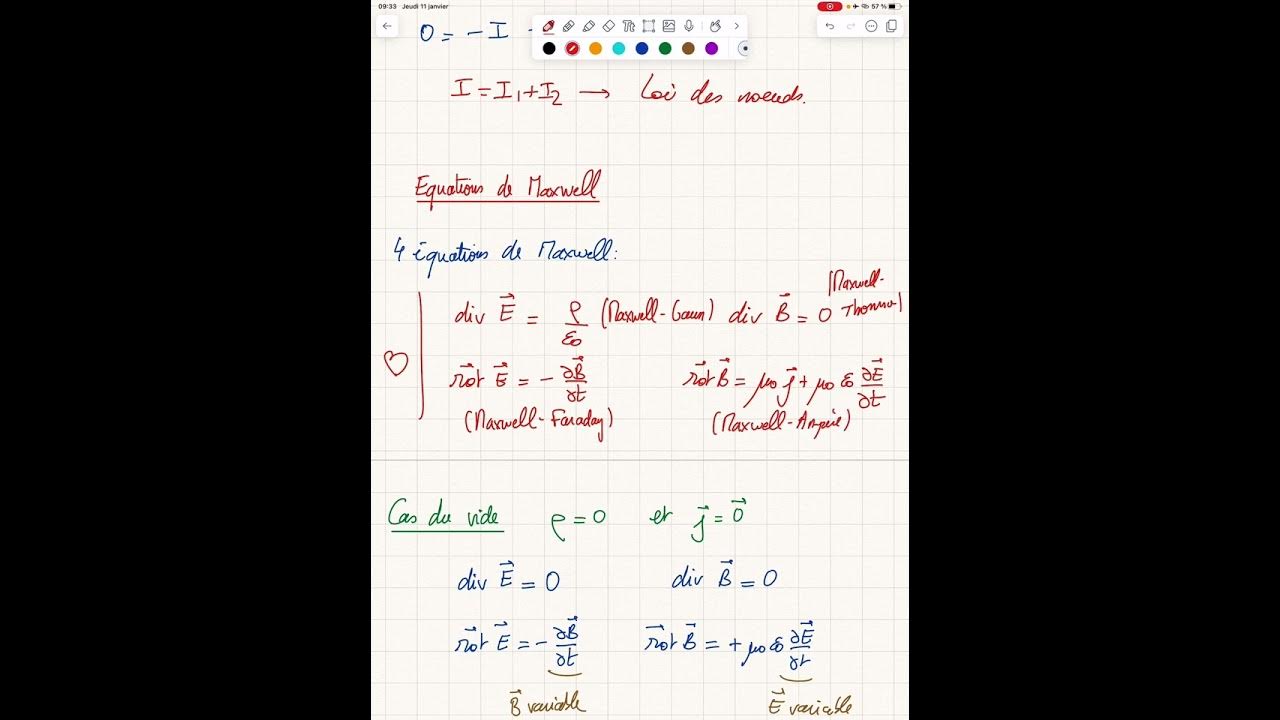 09:33 Jeudi 11 janvier 57 %
0 = - I
I = I₁ + I₂ → Loi des noeuds.
Equations de Maxwell
4 équations de Maxwell:
div E⃗ = ρ/ε₀ (Maxwell-Gauss) div B⃗ = 0 (Maxwell-Thomson)
rot⃗ E⃗ = - ∂B⃗/∂t rot⃗ B⃗ = μ₀ j⃗ + μ₀ ε₀ ∂E⃗/∂t
(Maxwell-Faraday) (Maxwell-Ampère)
Cas du vide ρ = 0 et j⃗ = 0⃗
div E⃗ = 0 div B⃗ = 0
rot⃗ E⃗ = - ∂B⃗/∂t rot⃗ B⃗ = + μ₀ ε₀ ∂E⃗/∂t
B⃗ variable E⃗ variable